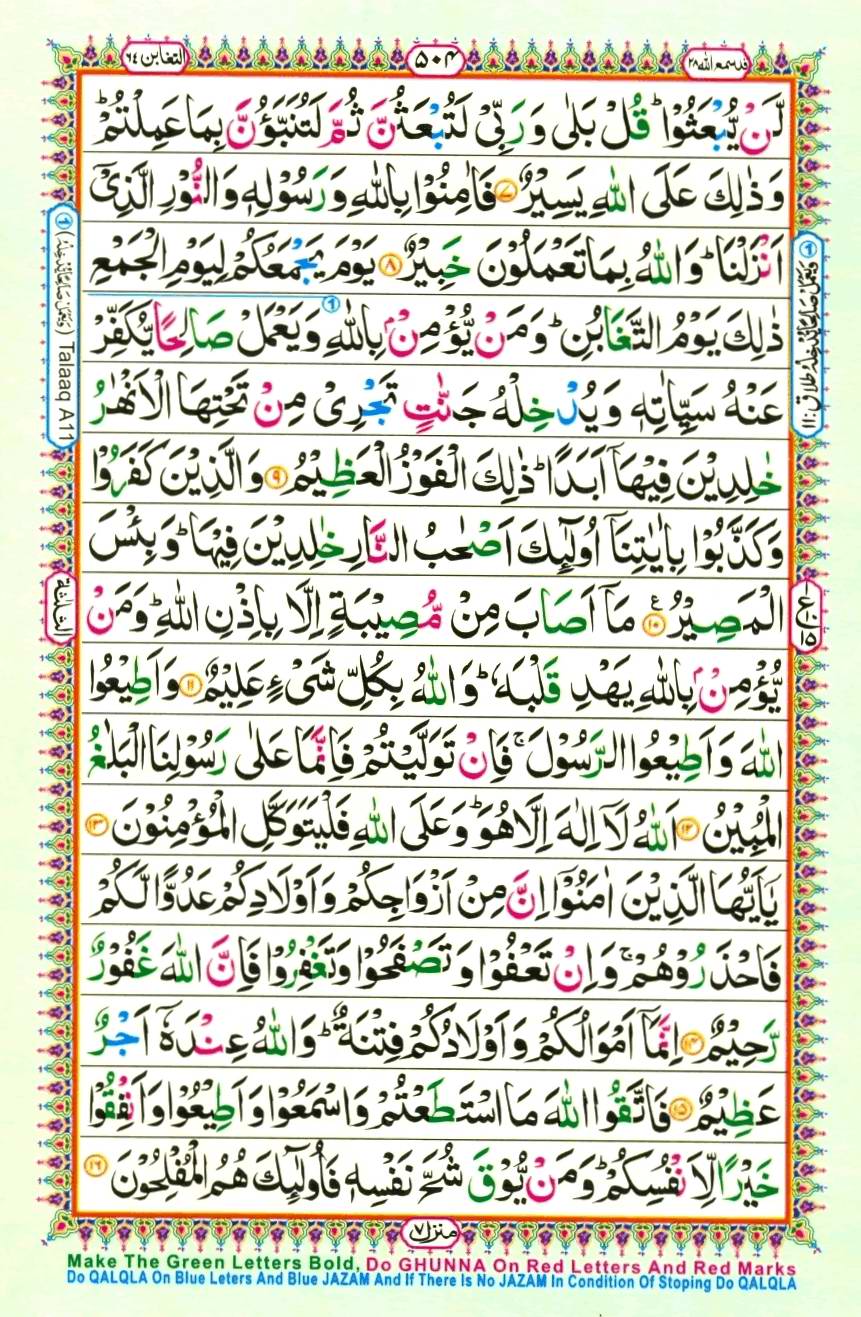 قد سمع الله ٢٨
٥٠٤
التغابن ٦٤
لَّنْ يُّبْعَثُوْا ؕ قُلْ بَلٰى وَ رَبِّىْ لَتُبْعَثُنَّ ثُمَّ لَتُنَبَّؤُنَّ بِمَا عَمِلْتُمْ ؕ
وَ ذٰلِكَ عَلَى اللّٰهِ يَسِيْرٌ ۷ فَاٰمِنُوْا بِاللّٰهِ وَ رَسُوْلِهٖ وَ النُّوْرِ الَّذِىْۤ
اَنْزَلْنَا ؕ وَ اللّٰهُ بِمَا تَعْمَلُوْنَ خَبِيْرٌ ۸ يَوْمَ يَجْمَعُكُمْ لِيَوْمِ الْجَمْعِ
ذٰلِكَ يَوْمُ التَّغَابُنِ ؕ وَ مَنْ يُّؤْمِنْۢ بِاللّٰهِ وَ يَعْمَلْ صَالِحًا يُّكَفِّرْ
عَنْهُ سَيِّاٰتِهٖ وَ يُدْخِلْهُ جَنّٰتٍ تَجْرِىْ مِنْ تَحْتِهَا الْاَنْهٰرُ
خٰلِدِيْنَ فِيْهَاۤ اَبَدًا ؕ ذٰلِكَ الْفَوْزُ الْعَظِيْمُ ۹ وَ الَّذِيْنَ كَفَرُوْا
وَ كَذَّبُوْا بِاٰيٰتِنَاۤ اُولٰٓئِكَ اَصْحٰبُ النَّارِ خٰلِدِيْنَ فِيْهَا ؕ وَ بِئْسَ
الْمَصِيْرُ ۱۰ مَاۤ اَصَابَ مِنْ مُّصِيْبَةٍ اِلَّا بِاِذْنِ اللّٰهِ ؕ وَ مَنْ
يُّؤْمِنْۢ بِاللّٰهِ يَهْدِ قَلْبَهٗ ؕ وَ اللّٰهُ بِكُلِّ شَىْءٍ عَلِيْمٌ ۱۱ وَ اَطِيْعُوا
اللّٰهَ وَ اَطِيْعُوا الرَّسُوْلَ ۚ فَاِنْ تَوَلَّيْتُمْ فَاِنَّمَا عَلٰى رَسُوْلِنَا الْبَلٰغُ
الْمُبِيْنُ ۱۲ اَللّٰهُ لَاۤ اِلٰهَ اِلَّا هُوَ ؕ وَ عَلَى اللّٰهِ فَلْيَتَوَكَّلِ الْمُؤْمِنُوْنَ ۱۳
يٰۤاَيُّهَا الَّذِيْنَ اٰمَنُوْۤا اِنَّ مِنْ اَزْوَاجِكُمْ وَ اَوْلَادِكُمْ عَدُوًّا لَّكُمْ
فَاحْذَرُوْهُمْ ۚ وَ اِنْ تَعْفُوْا وَ تَصْفَحُوْا وَ تَغْفِرُوْا فَاِنَّ اللّٰهَ غَفُوْرٌ
رَّحِيْمٌ ۱۴ اِنَّمَاۤ اَمْوَالُكُمْ وَ اَوْلَادُكُمْ فِتْنَةٌ ؕ وَ اللّٰهُ عِنْدَهٗۤ اَجْرٌ
عَظِيْمٌ ۱۵ فَاتَّقُوا اللّٰهَ مَا اسْتَطَعْتُمْ وَ اسْمَعُوْا وَ اَطِيْعُوْا وَ اَنْفِقُوْا
خَيْرًا لِّاَنْفُسِكُمْ ؕ وَ مَنْ يُّوْقَ شُحَّ نَفْسِهٖ فَاُولٰٓئِكَ هُمُ الْمُفْلِحُوْنَ ۱۶
منزل ۷
Make The Green Letters Bold, Do GHUNNA On Red Letters And Red Marks
Do QALQLA On Blue Leters And Blue JAZAM And If There Is No JAZAM In Condition Of Stoping Do QALQLA
① (وَيَعْمَلْ صَالِحًا يُّدْخِلْهُ) Talaaq A11
الثلثة
① وَيَعْمَلْ صَالِحًا يُّدْخِلْهُ طلاق: ١١
ع ١٥